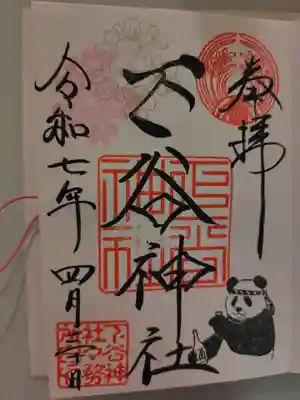 奉拝
下谷神社
下谷神社
令和七年 四月 日
下谷神社社務所印